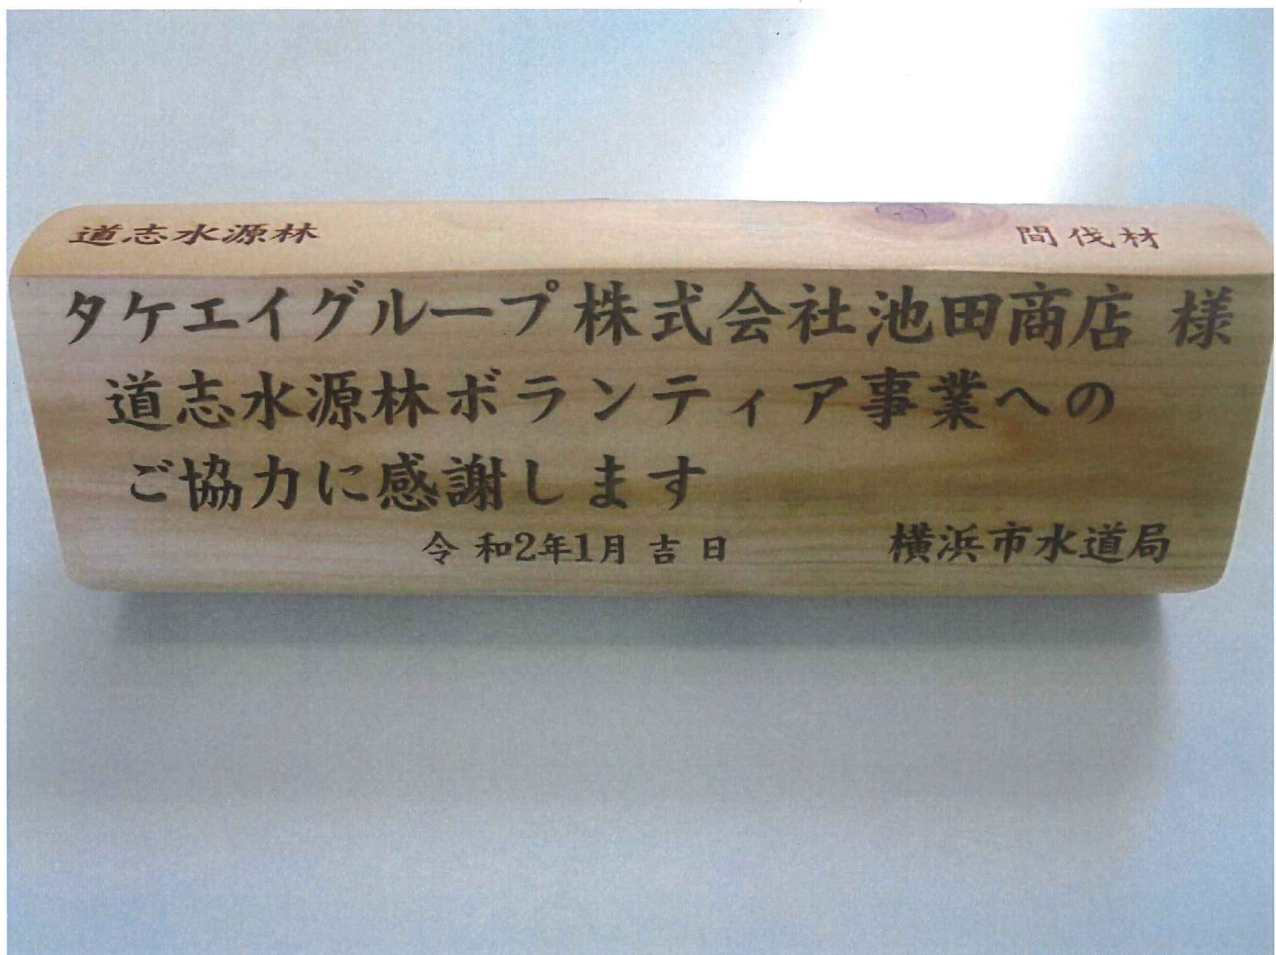 道志水源林 間伐材
タケエイグループ 株式会社池田商店 様
道志水源林ボランティア事業への
ご協力に感謝します
令和2年1月吉日 横浜市水道局